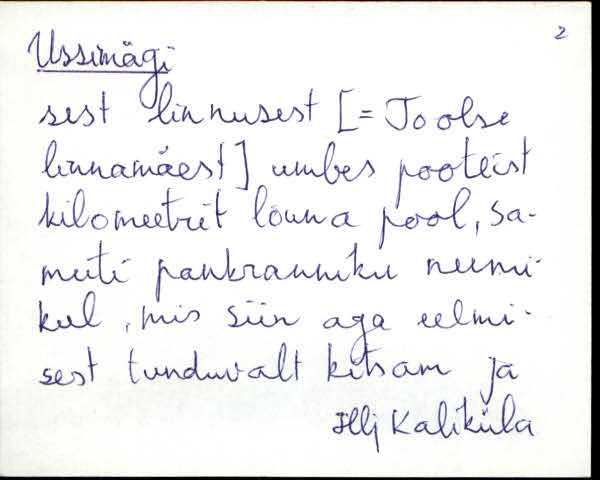 2
Ussimägi
sest linnusest [= Toolse
linnamäest] umbes pooteist
kilomeetrit lõuna pool, sa-
muti pankranniku neemi-
kul, mis siin aga eelmi-
sest tunduvalt kitsam ja
Hlj Kaliküla